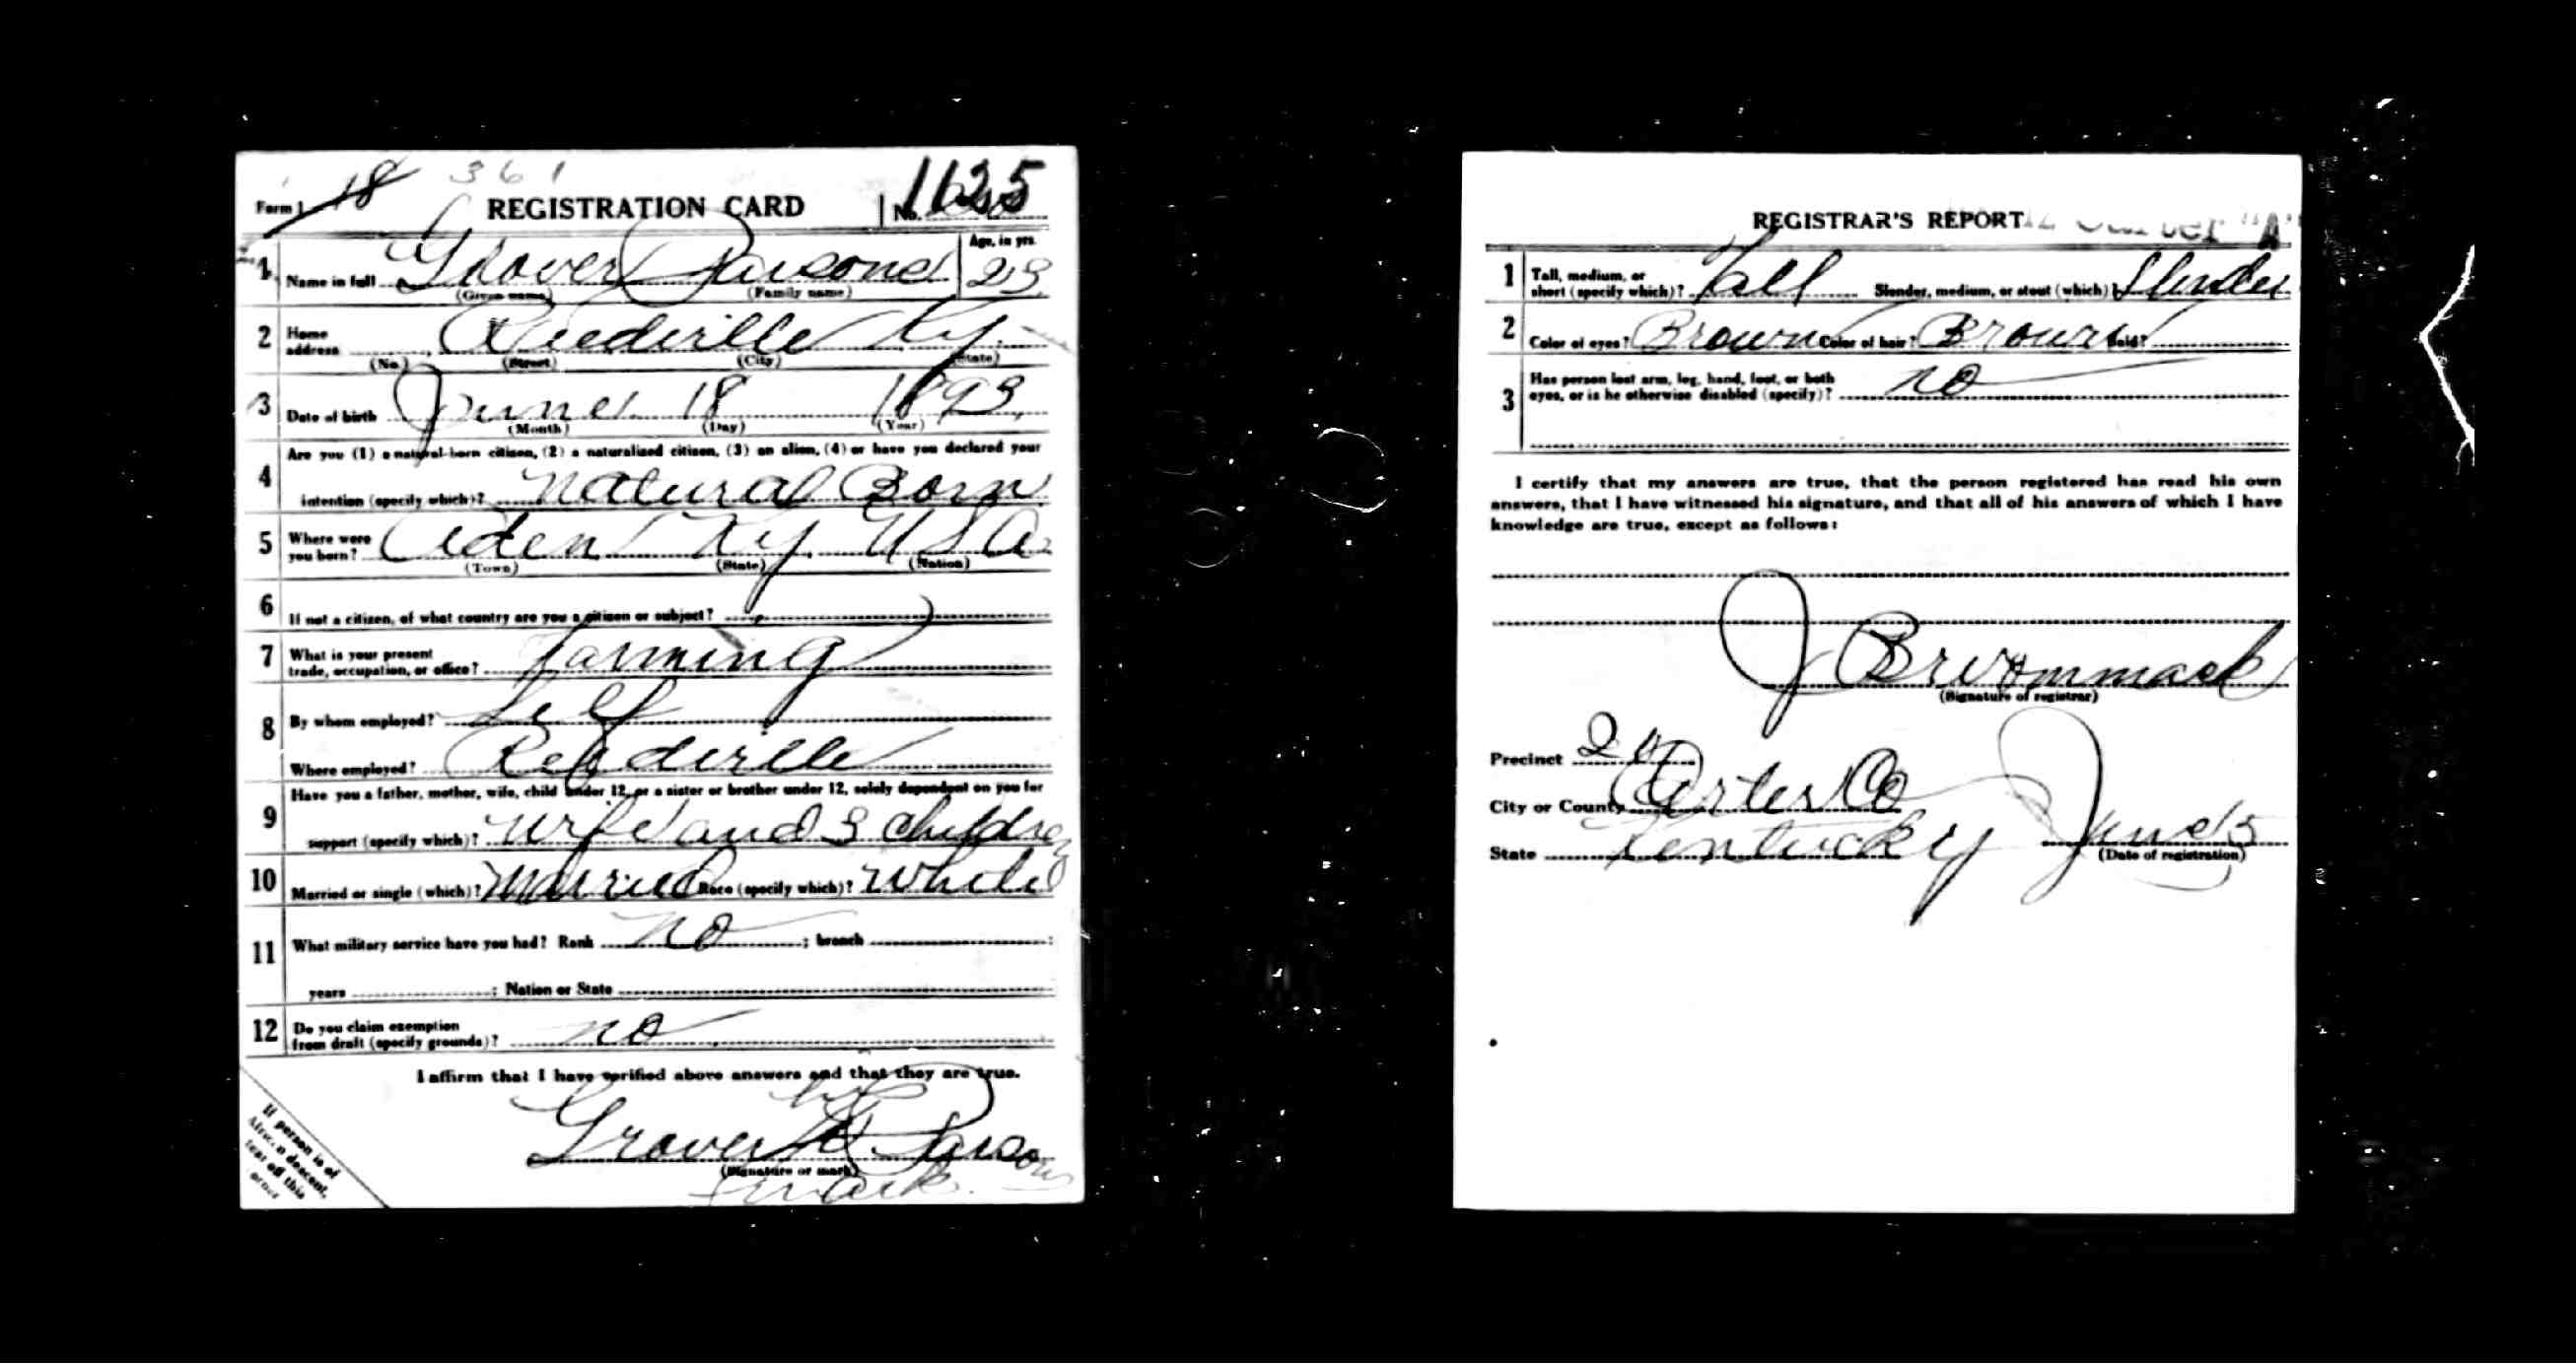 Form 1 18 361 REGISTRATION CARD No. 1125
1 Name in full Grover Parsons Age, in yrs. 23
(Given name) (Family name)
2 Home address Reedville Ky.
(No.) (Street) (City) (State)
3 Date of birth June 18 1893
(Month) (Day) (Year)
4 Are you (1) a natural-born citizen, (2) a naturalized citizen, (3) an alien, (4) or have you declared your
intention (specify which)? Natural Born
5 Where were you born? Aden Ky. USA
(Town) (State) (Nation)
6 If not a citizen, of what country are you a citizen or subject?
7 What is your present trade, occupation, or office? Farming
8 By whom employed? Self
Where employed? Reedville
9 Have you a father, mother, wife, child under 12, or a sister or brother under 12, solely dependent on you for
support (specify which)? Wife and 3 children
10 Married or single (which)? Married Race (specify which)? White
11 What military service have you had? Rank no ; branch ;
years ; Nation or State
12 Do you claim exemption from draft (specify grounds)? no
I affirm that I have verified above answers and that they are true.
his
Grover X Parsons
(Signature or mark)
mark.
If person is of
African descent,
tear off this
corner
REGISTRAR'S REPORT "A"
1 Tall, medium, or short (specify which)? Tall Slender, medium, or stout (which)? Slender
2 Color of eyes? Brown Color of hair? Brown Bald?
3 Has person lost arm, leg, hand, foot, or both
eyes, or is he otherwise disabled (specify)? no
I certify that my answers are true, that the person registered has read his own
answers, that I have witnessed his signature, and that all of his answers of which I have
knowledge are true, except as follows:
J B
(Signature of registrar)
Precinct
City or County Carter Co
State Kentucky June 5
(Date of registration)